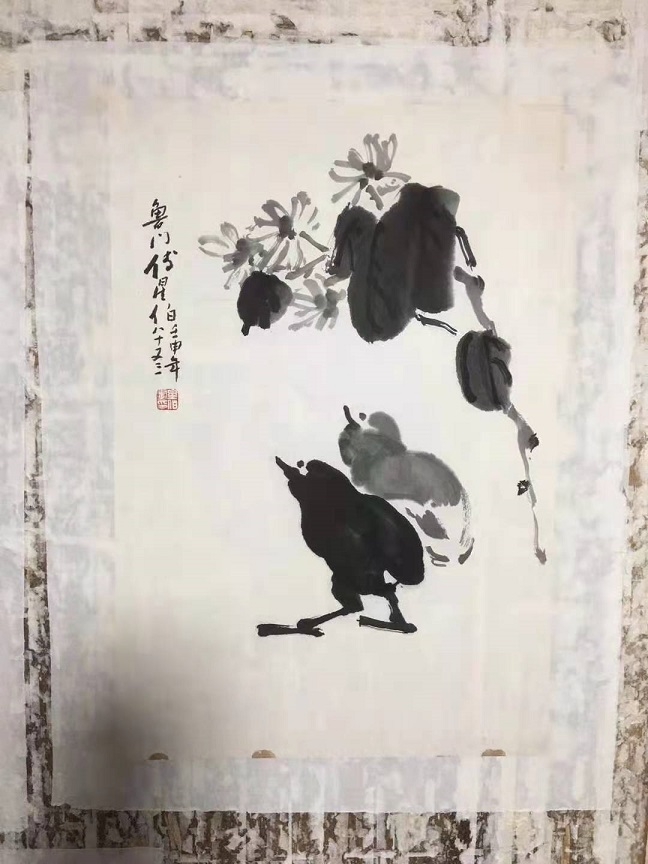 魯门傅星伯
壬申年
八十又三